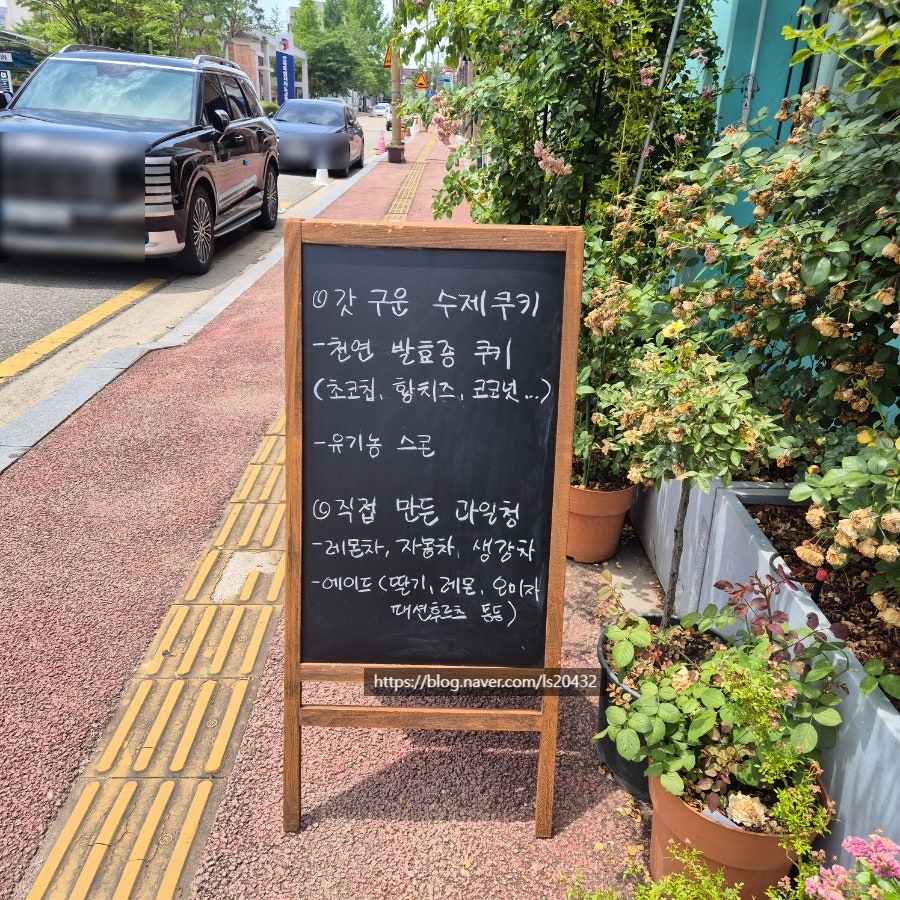 ◎ 갓 구운 수제쿠키
- 천연 발효종 쿠키
(초코칩, 황치즈, 코코넛...)
- 유기농 스콘
◎ 직접 만든 과일청
- 레몬차, 자몽차, 생강차
- 에이드 (딸기, 레몬, 오미자
패션후르츠 등등)
https://blog.naver.com/ls20432